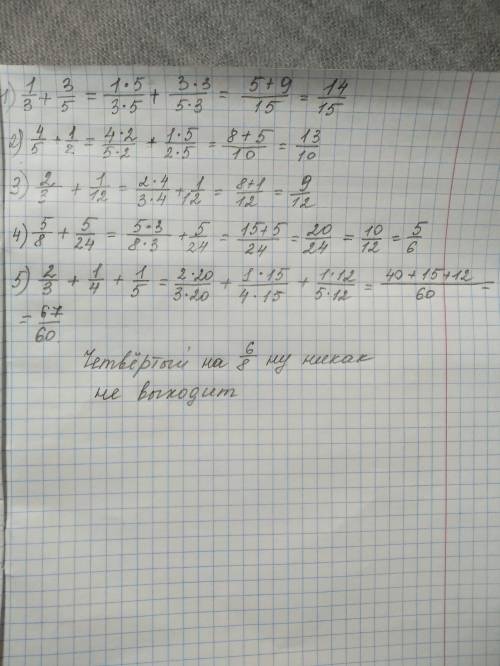 1) 1/3 + 3/5 = 1·5/3·5 + 3·3/5·3 = 5+9/15 = 14/15
2) 4/5 + 1/2 = 4·2/5·2 + 1·5/2·5 = 8+5/10 = 13/10
3) 2/3 + 1/12 = 2·4/3·4 + 1/12 = 8+1/12 = 9/12
4) 5/8 + 5/24 = 5·3/8·3 + 5/24 = 15+5/24 = 20/24 = 10/12 = 5/6
5) 2/3 + 1/4 + 1/5 = 2·20/3·20 + 1·15/4·15 + 1·12/5·12 = 40+15+12/60 =
= 67/60
Четвёртый на 6/8 ну никак
не выходит